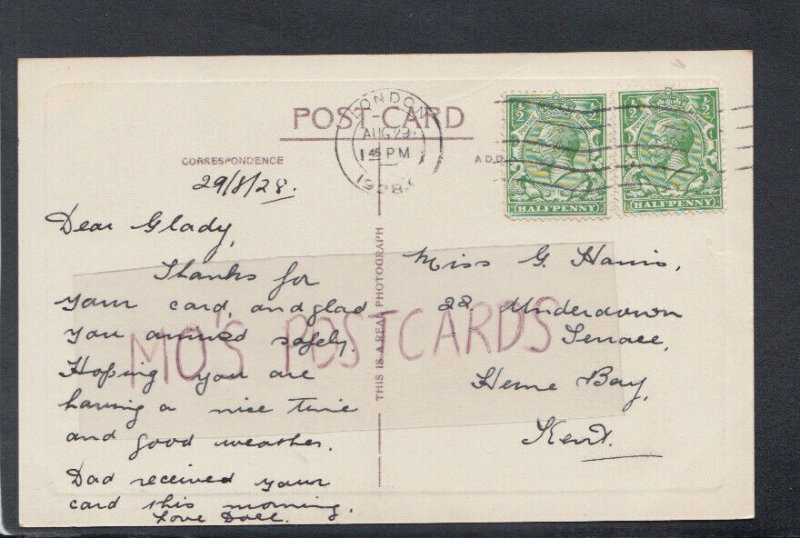 POST CARD
LONDON
AUG 29
1 45 PM
1928
CORRESPONDENCE
ADD
HALFPENNY
HALFPENNY
½
½
½
½
29/8/28.
Dear Glady,
Thanks for
your card, and glad
you arrived safely.
Hoping you are
having a nice time
and good weather.
Dad received your
card this morning.
Love Doll.
THIS IS A REAL PHOTOGRAPH
Miss G. Harris,
22, Underdown
Terrace,
Herne Bay,
Kent.
MO'S POSTCARDS